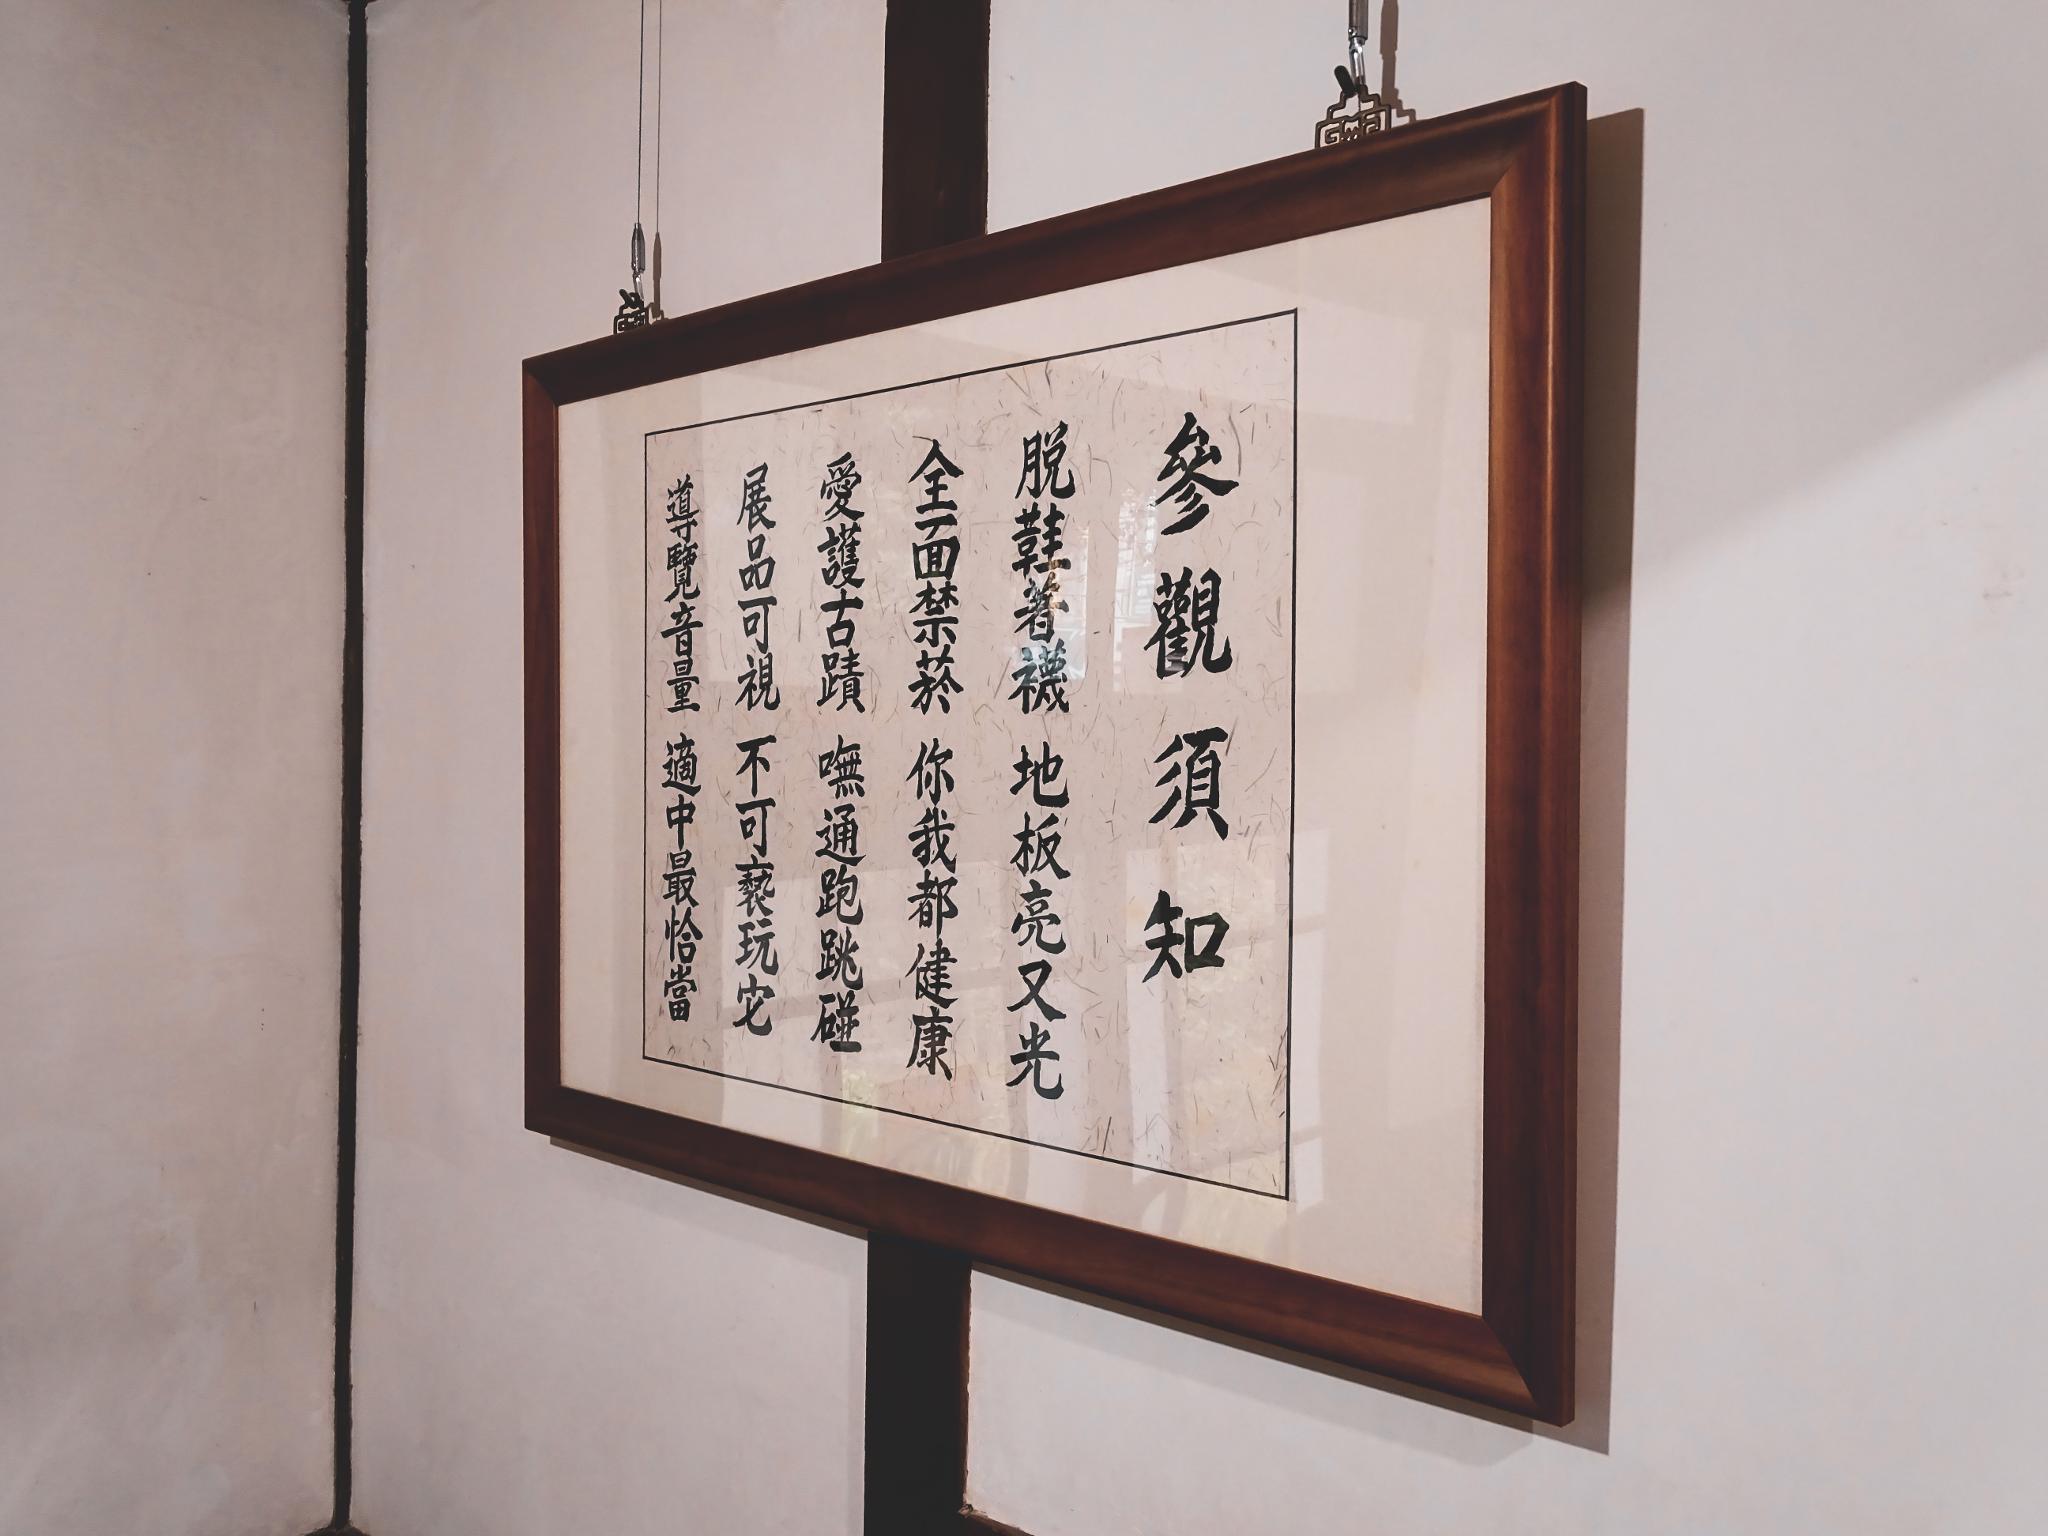 參觀須知
脫鞋著襪 地板亮又光
全面禁菸 你我都健康
愛護古蹟 嘸通跑跳碰
展品可視 不可褻玩它
導覽音量 適中最恰當